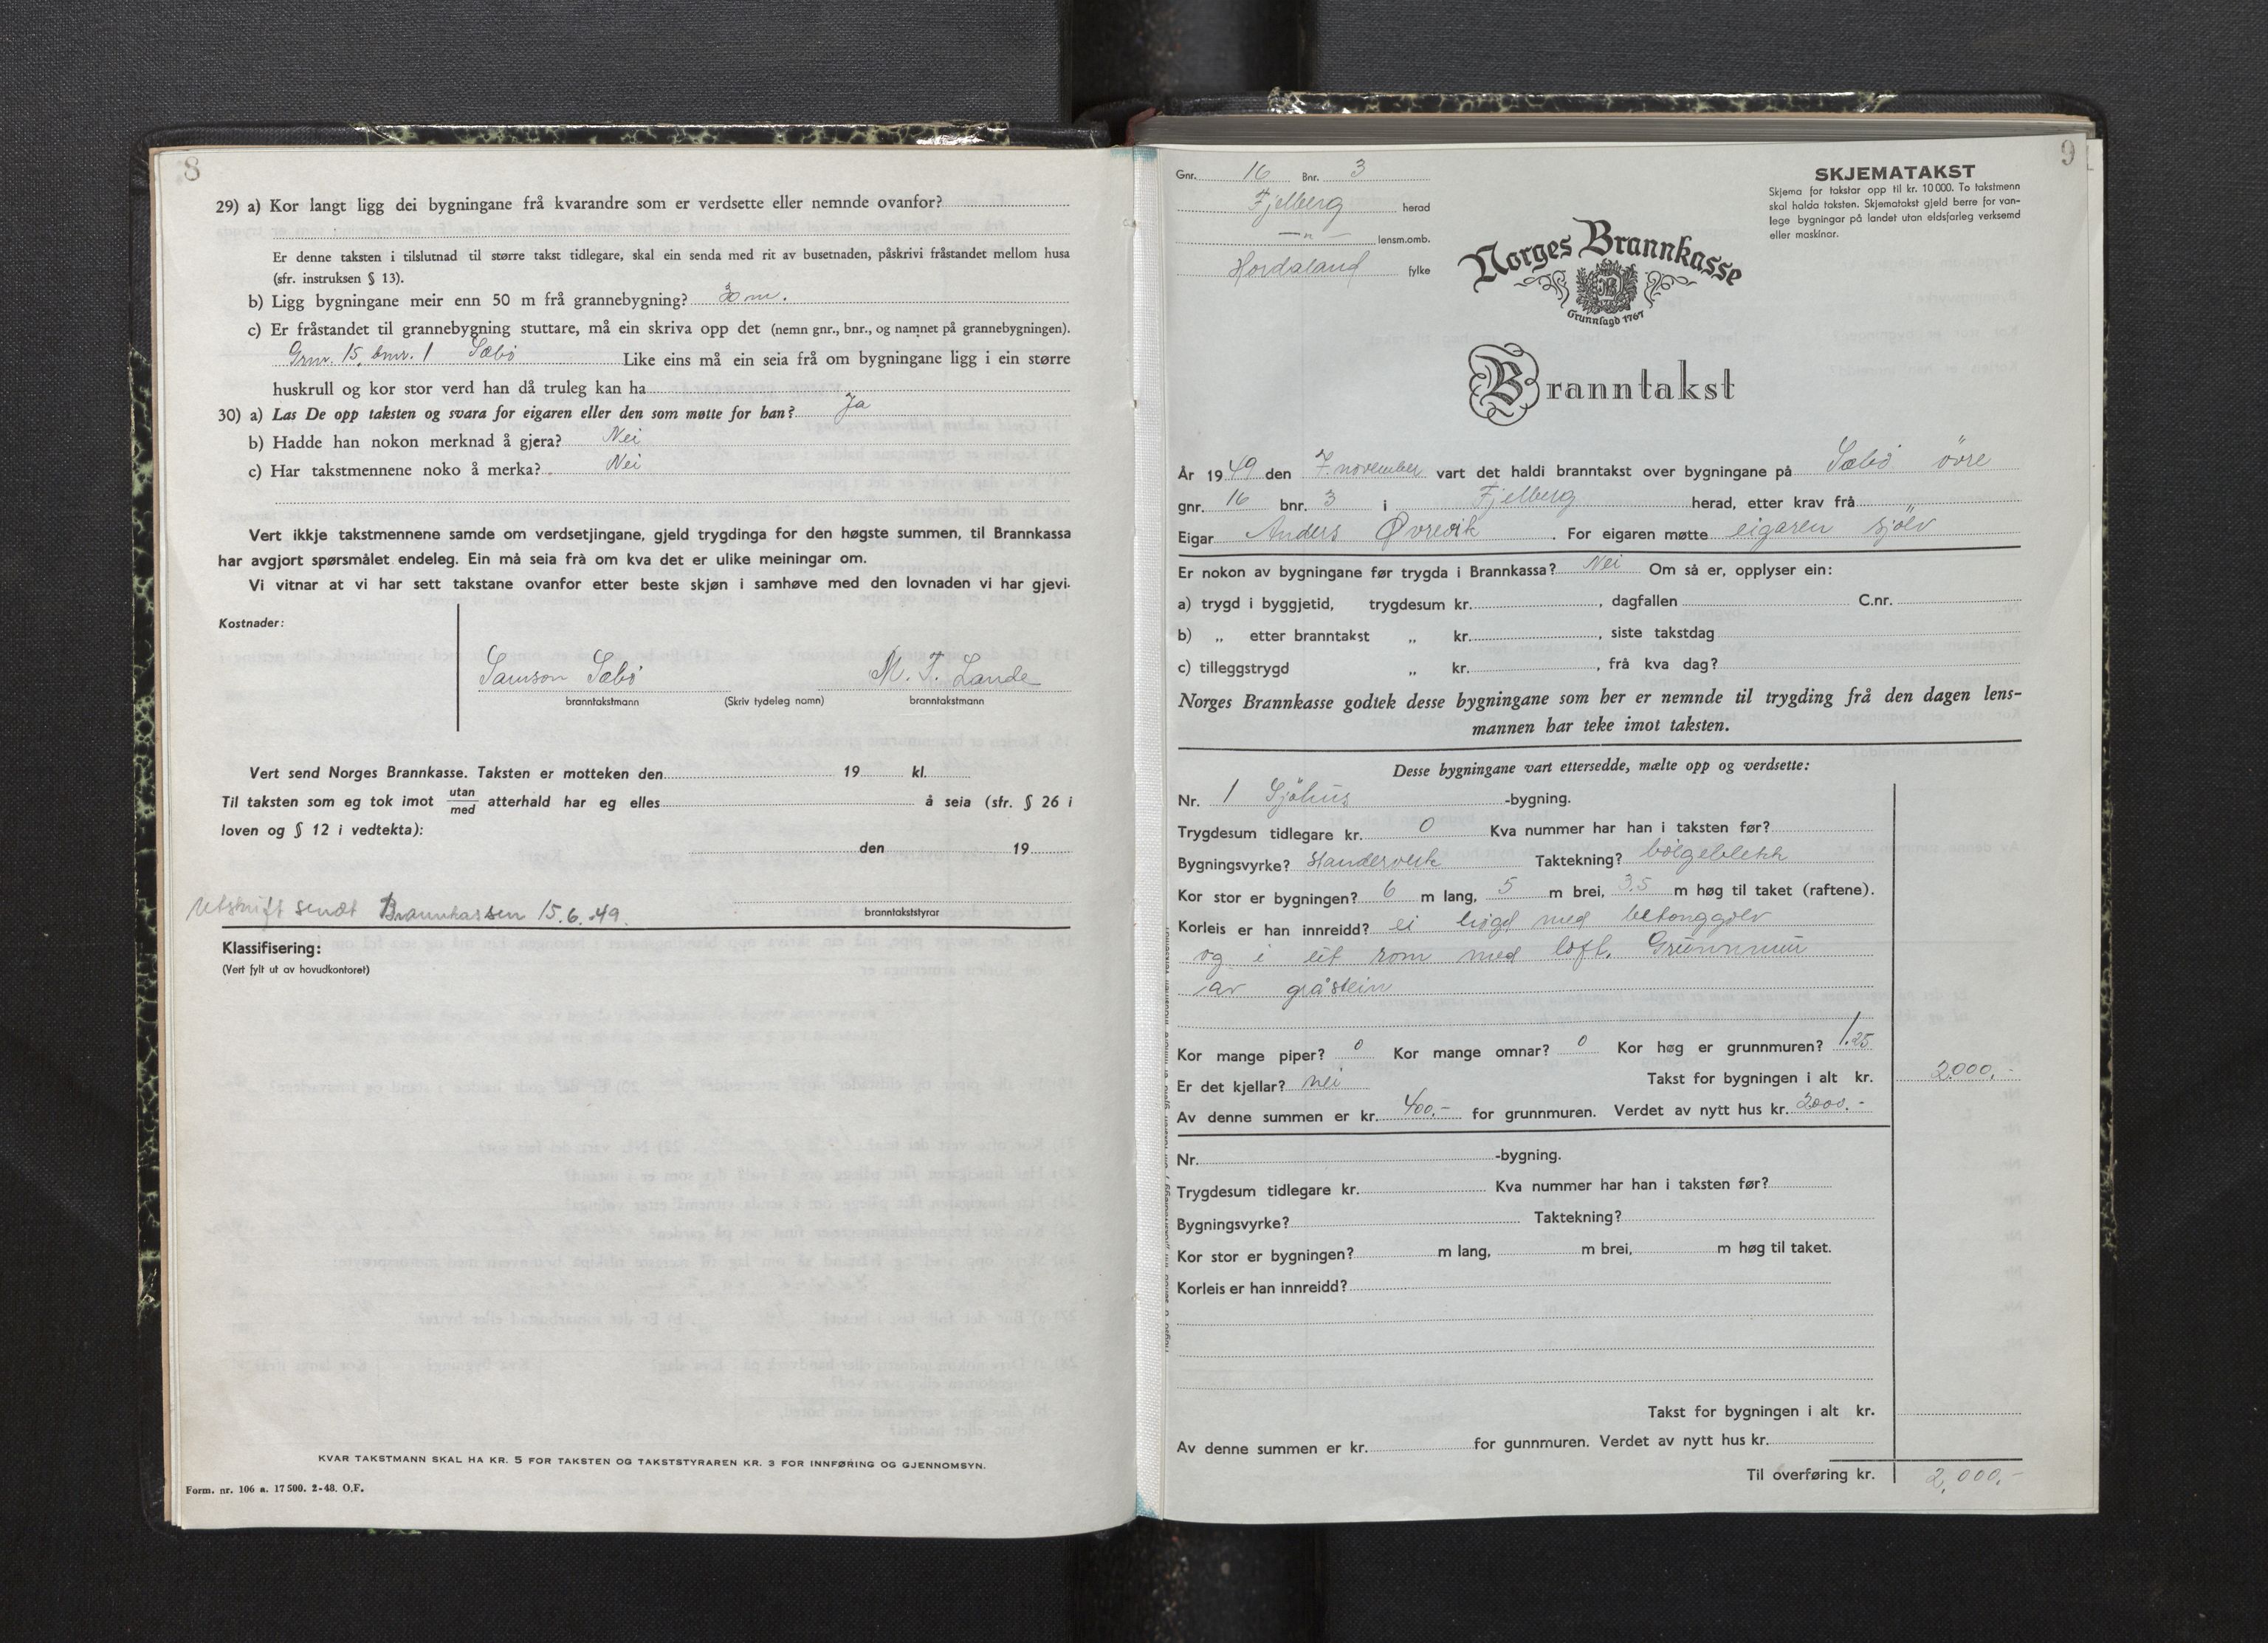 8
29) a) Kor langt ligg dei bygningane frå kvarandre som er verdsette eller nemnde ovanfor?
Er denne taksten i tilslutnad til større takst tidlegare, skal ein senda med rit av busetnaden, påskrivi fråstandet mellom husa
(sfr. instruksen § 13).
b) Ligg bygningane meir enn 50 m frå grannebygning? 30 m.
c) Er fråstandet til grannebygning stuttare, må ein skriva opp det (nemn gnr., bnr., og namnet på grannebygningen).
Gnr. 15, bnr. 1 Sæbö Like eins må ein seia frå om bygningane ligg i ein større
huskrull og kor stor verd han då truleg kan ha
30) a) Las De opp taksten og svara for eigaren eller den som møtte for han? Ja
b) Hadde han nokon merknad å gjera? Nei
c) Har takstmennene noko å merka? Nei
Vert ikkje takstmennene samde om verdsetjingane, gjeld trygdinga for den høgste summen, til Brannkassa
har avgjort spørsmålet endeleg. Ein må seia frå om kva det er ulike meiningar om.
Vi vitnar at vi har sett takstane ovanfor etter beste skjøn i samhøve med den lovnaden vi har gjevi.
Kostnader:
Samson Sæbö M. T. Lande
branntakstmann (Skriv tydeleg namn) branntakstmann
Vert send Norges Brannkasse. Taksten er motteken den 19 kl.
Til taksten som eg tok imot utan/med atterhald har eg elles å seia (sfr. § 26 i
loven og § 12 i vedtekta):
den 19
Utskrift sendt Brannkassen 15.6.49.
branntakststyrar
Klassifisering:
(Vert fylt ut av hovudkontoret)
KVAR TAKSTMANN SKAL HA KR. 5 FOR TAKSTEN OG TAKSTSTYRAREN KR. 3 FOR INNFØRING OG GJENNOMSYN.
Form. nr. 106 a. 17 500. 2-48. O.F.
9
Gnr. 16 Bnr. 3
Fjelberg herad
—"— lensm.omb.
Hordaland fylke
SKJEMATAKST
Skjema for takstar opp til kr. 10 000. To takstmenn
skal halda taksten. Skjematakst gjeld berre for van-
lege bygningar på landet utan eldsfarleg verksemd
eller maskinar.
Norges Brannkasse
Grunnlagd 1767
Branntakst
År 1949 den 7. november vart det haldi branntakst over bygningane på Sæbö övre
gnr. 16 bnr. 3 i Fjelberg herad, etter krav frå "
Eigar Anders Øvrevik. For eigaren møtte eigaren sjölv
Er nokon av bygningane før trygda i Brannkassa? Nei Om så er, opplyser ein:
a) trygd i byggjetid, trygdesum kr. , dagfallen C.nr.
b) „ etter branntakst „ kr. , siste takstdag
c) tilleggstrygd „ kr. , frå kva dag?
Norges Brannkasse godtek desse bygningane som her er nemnde til trygding frå den dagen lens-
mannen har teke imot taksten.
Desse bygningane vart ettersedde, mælte opp og verdsette:
Nr. 1 Sjöhus -bygning.
Trygdesum tidlegare kr. 0 Kva nummer har han i taksten før?
Bygningsvyrke? Standerverk Taktekning? bölgeblekk
Kor stor er bygningen? 6 m lang, 5 m brei, 3.5 m høg til taket (raftene).
Korleis er han innreidd? ei högd med betonggolv
og i eit rom med loft. Grunnmur
av gråstein
Kor mange piper? 0 Kor mange omnar? 0 Kor høg er grunnmuren? 1.25
Er det kjellar? Nei Takst for bygningen i alt kr. 2000.-
Av denne summen er kr. 400.- for grunnmuren. Verdet av nytt hus kr. 2000.-
Nr. -bygning.
Trygdesum tidlegare kr. Kva nummer har han i taksten før?
Bygningsvyrke? Taktekning?
Kor stor er bygningen? m lang, m brei, m høg til taket.
Korleis er han innreidd?
Takst for bygningen i alt kr.
Av denne summen er kr. for gunnmuren. Verdet av nytt hus kr.
Til overføring kr. 2,000.-